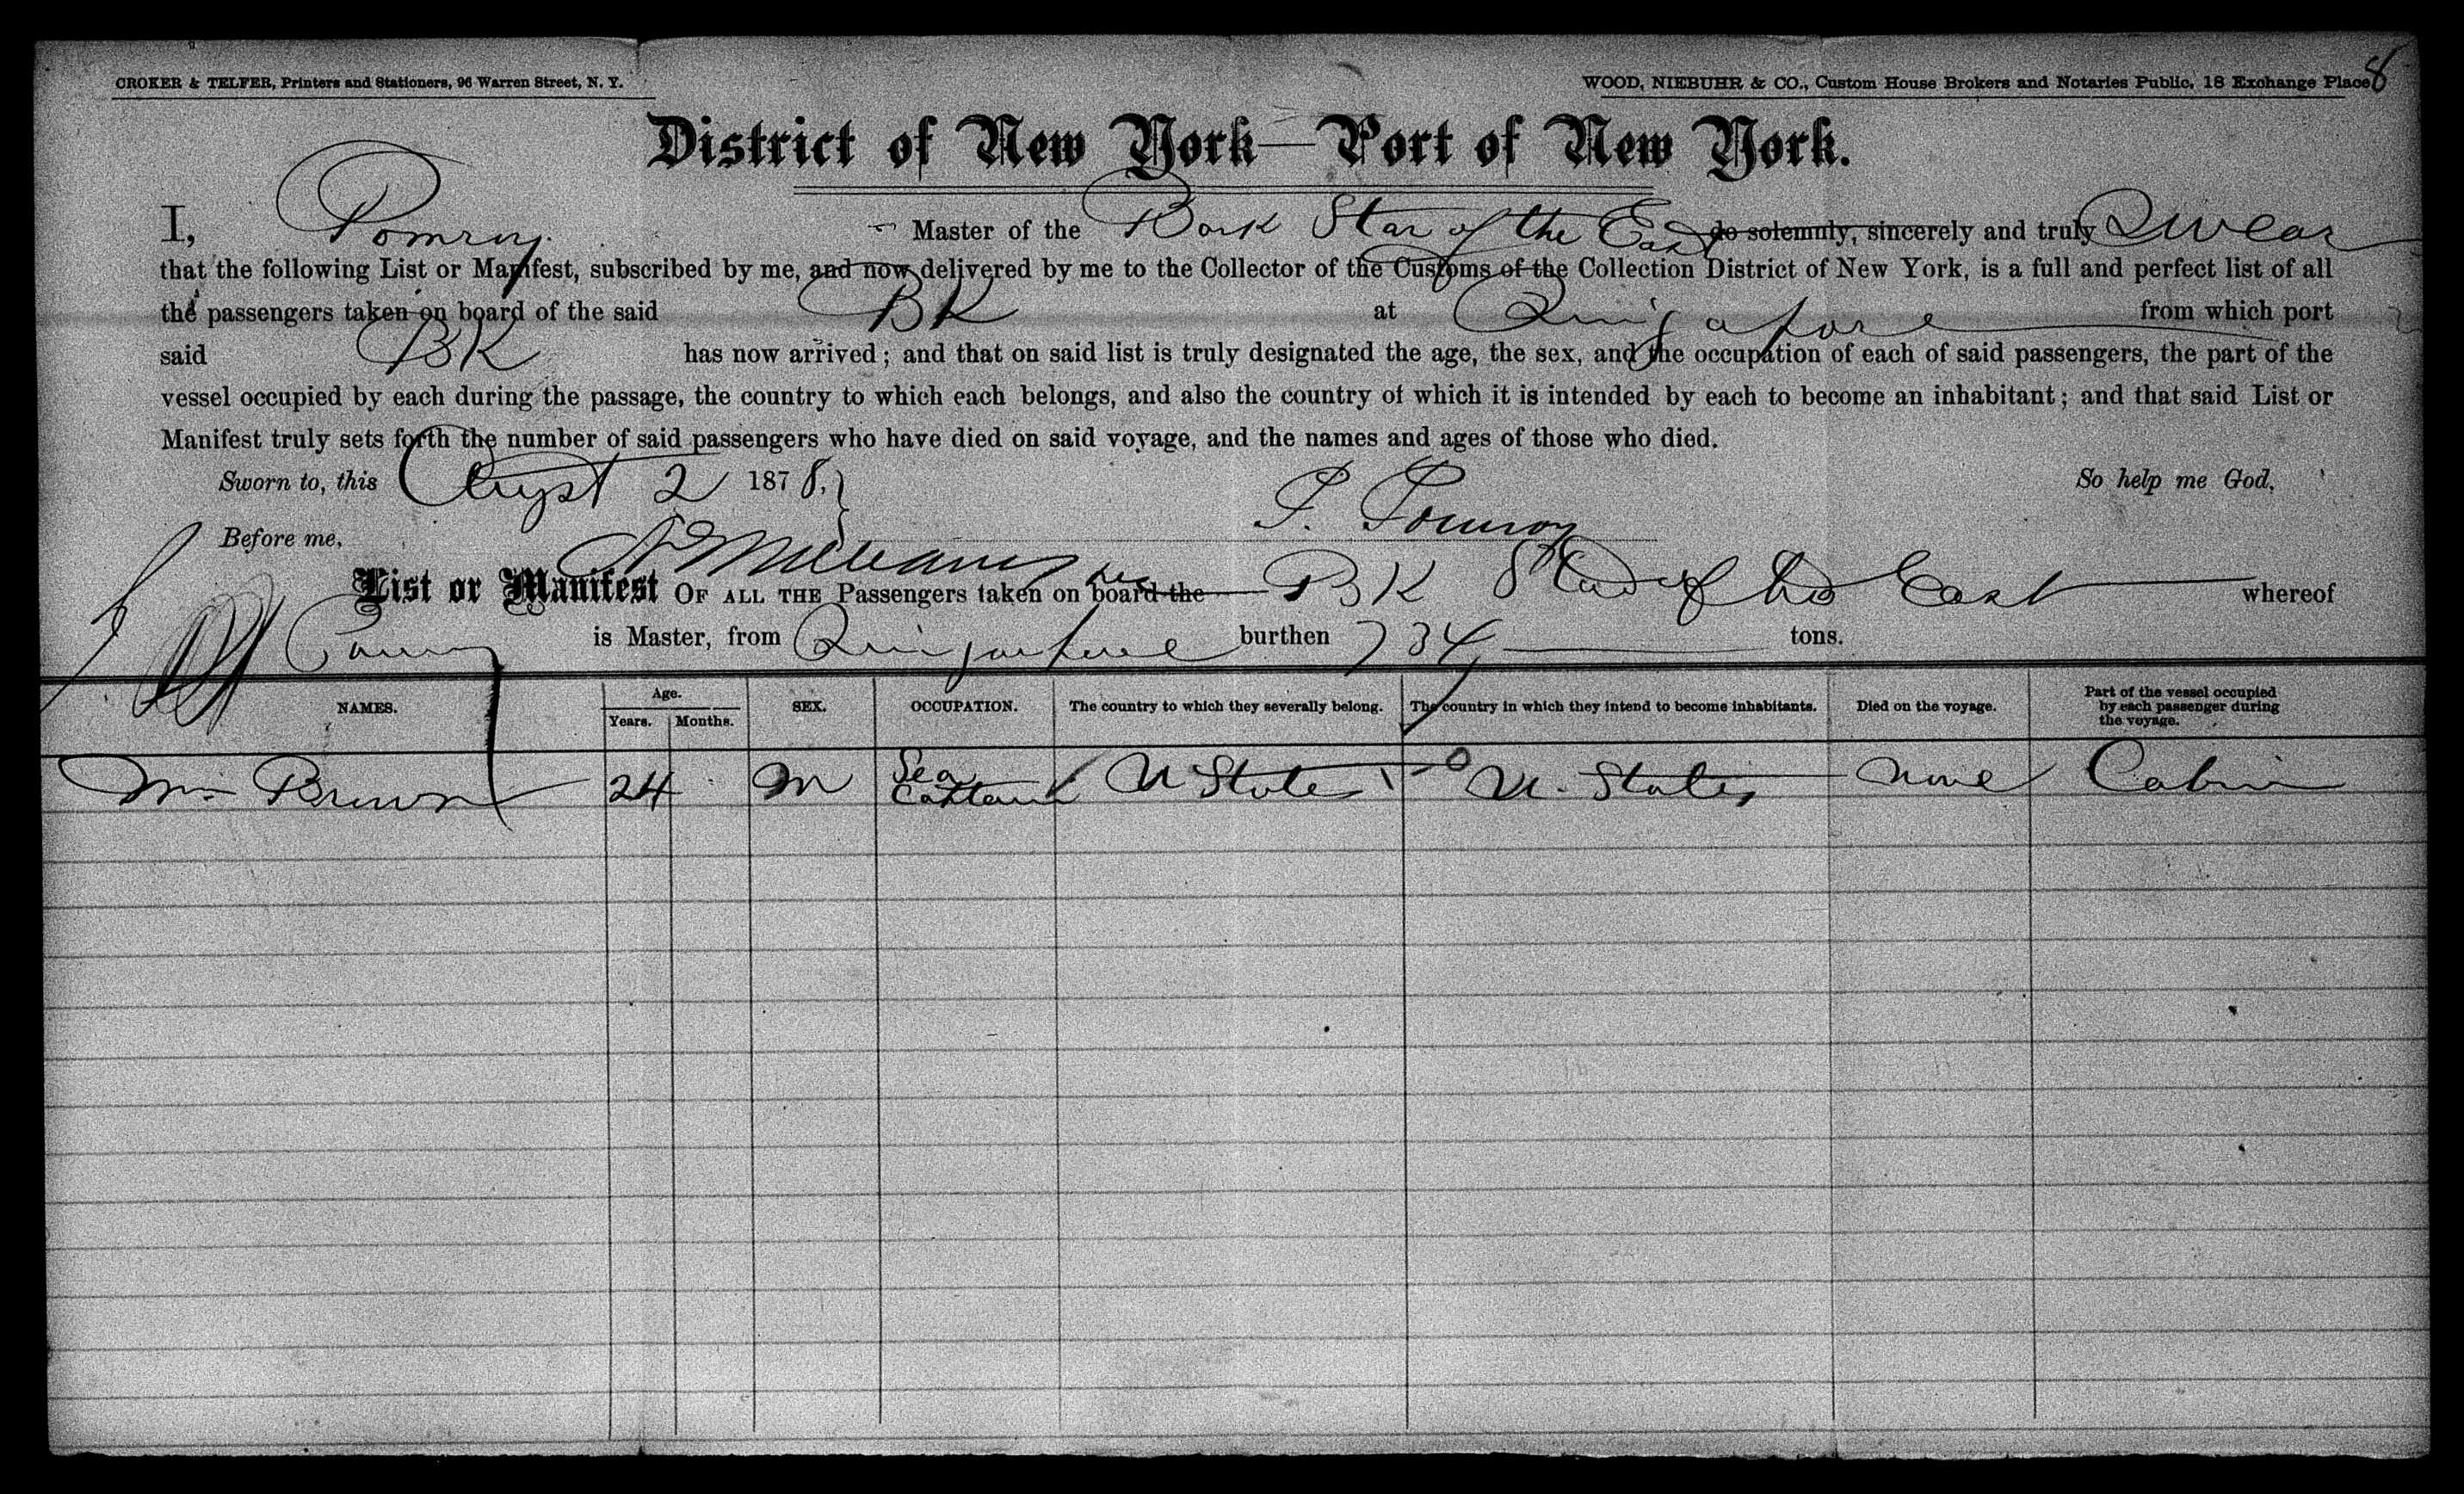 8
CROKER & TELFER, Printers and Stationers, 96 Warren Street, N. Y. WOOD, NIEBUHR & CO., Custom House Brokers and Notaries Public, 18 Exchange Place
District of New York—Port of New York.
I, Pomroy Master of the Bark Star of the East do solemnly, sincerely and truly Swear
that the following List or Manifest, subscribed by me, and now delivered by me to the Collector of the Customs of the Collection District of New York, is a full and perfect list of all
the passengers taken on board of the said BK at Singapore from which port
said BK has now arrived; and that on said list is truly designated the age, the sex, and the occupation of each of said passengers, the part of the
vessel occupied by each during the passage, the country to which each belongs, and also the country of which it is intended by each to become an inhabitant; and that said List or
Manifest truly sets forth the number of said passengers who have died on said voyage, and the names and ages of those who died.
Sworn to, this Augst 2 1878, So help me God,
Before me, Williams Pomroy
List or Manifest OF ALL THE Passengers taken on board the BK Star of the East whereof
Pomroy is Master, from Singapore burthen 734 tons.
NAMES. Age. Years. Months. SEX. OCCUPATION. The country to which they severally belong. The country in which they intend to become inhabitants. Died on the voyage. Part of the vessel occupied by each passenger during the voyage.
Brown 24 M Sea Captain U States U. States None Cabin